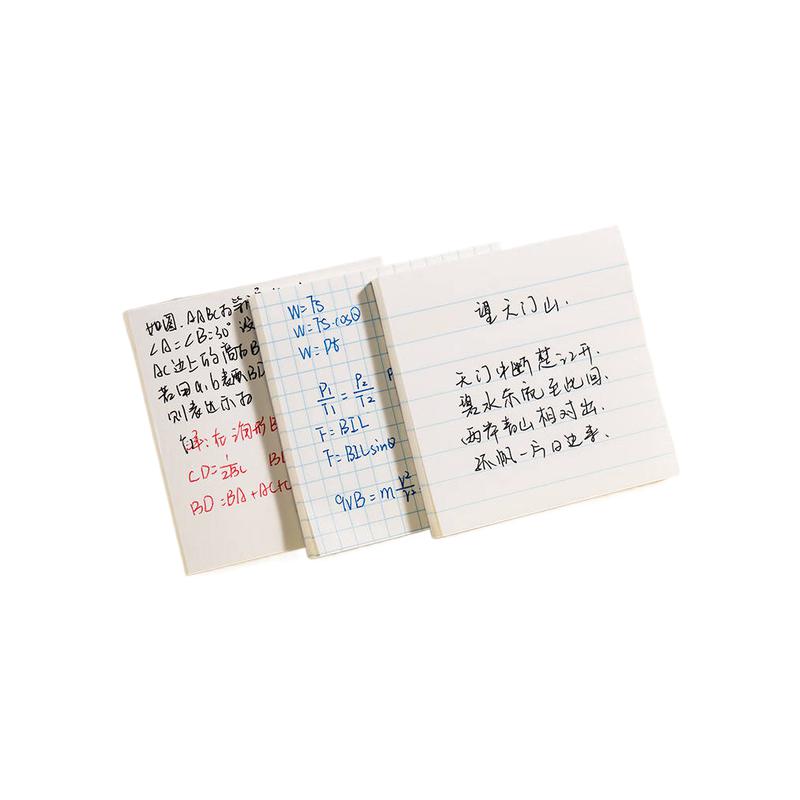 如图.△ABC为等
∠A=∠B=30°
AC边上的高为B
若用a,b表示BD
则表达示为
CD=1/2BC
BD=BA+AC+C
W=FS
W=FS·cosθ
W=Pt
P1/T1=P2/T2
F=BIL
F=BILsinθ
qVB=m v²/r²
望天门山.
天门中断楚江开.
碧水东流至此回.
两岸青山相对出.
孤帆一片日边来.